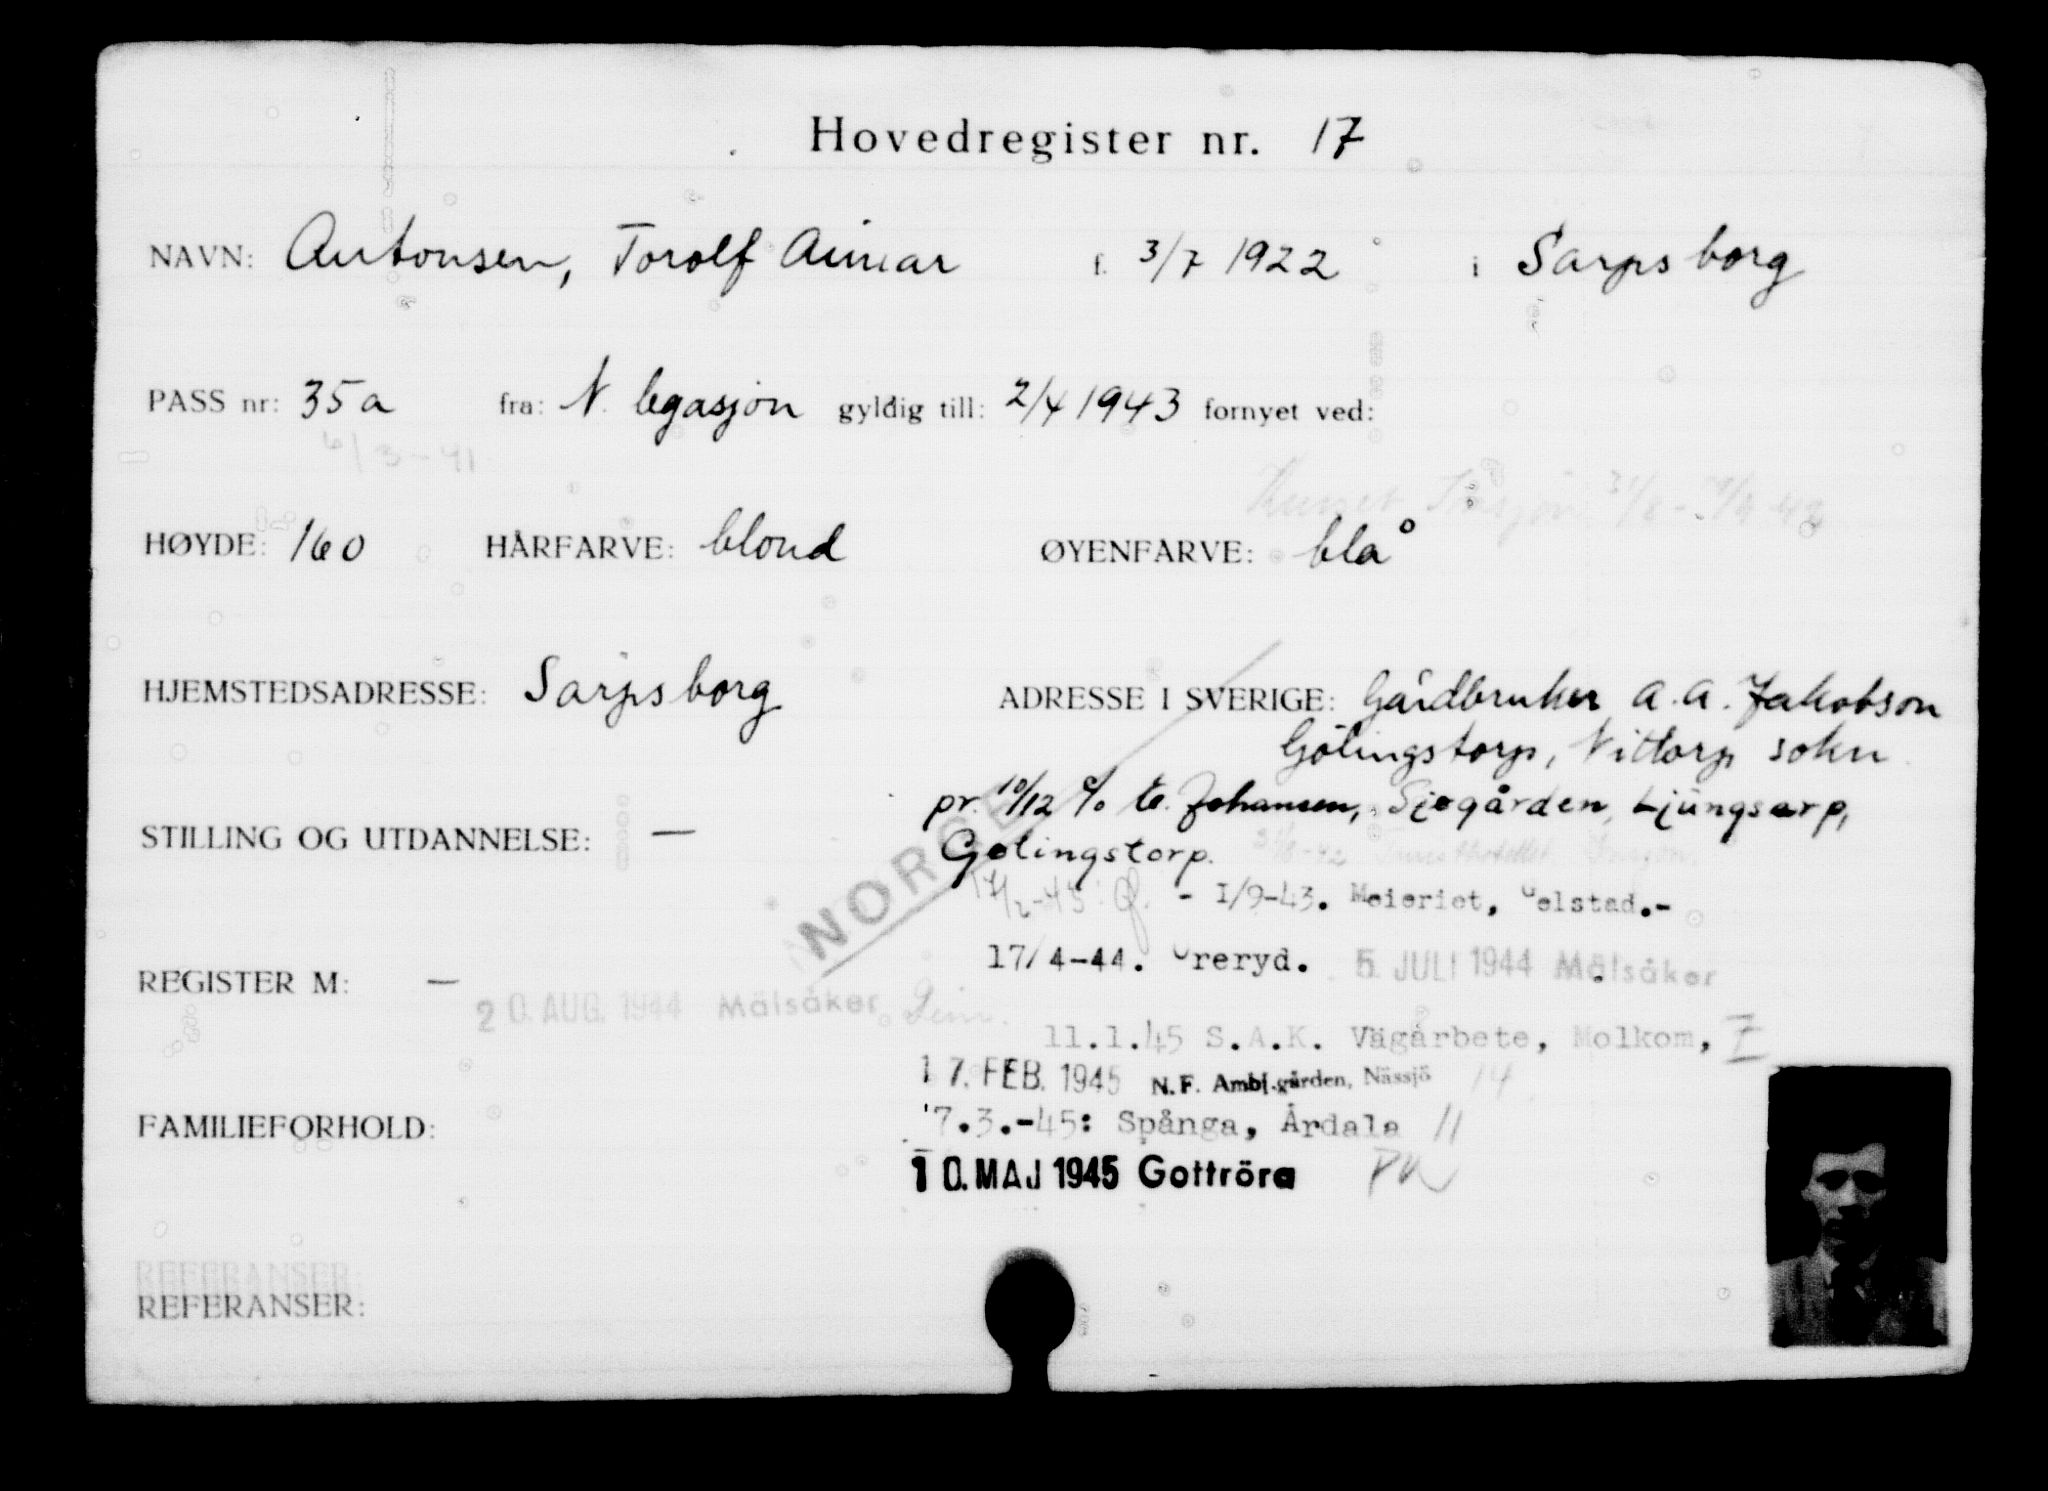 Hovedregister nr. 17
NAVN: Antonsen, Torolf Aimar f. 3/7 1922 i Sarpsborg
PASS nr: 35a fra: N. legasjon gyldig till: 2/4 1943 fornyet ved:
6/3-41
HØYDE: 160 HÅRFARVE: blond ØYENFARVE: blå
HJEMSTEDSADRESSE: Sarpsborg ADRESSE I SVERIGE: Gårdbruker A.A. Jakobson
Gölingstorp, Nittorp sokn
pr. 10/12 c/o E. Johansen, Sjøgården, Ljungsarp,
STILLING OG UTDANNELSE: —
Gølingstorp.
NORGE
- I/9-43. Meieriet, Gelstad.-
17/4-44. Øreryd. 5. JULI 1944 Mälsåker
REGISTER M: —
20. AUG. 1944 Mälsåker
11.1.45 S.A.K. Vägarbete, Molkom, 7
17. FEB. 1945 N.F. Ambl.gården, Nässjö 14
FAMILIEFORHOLD: 7.3.-45: Spånga, Årdala 11
10. MAJ 1945 Gottröra
REFERANSER:
REFERANSER: